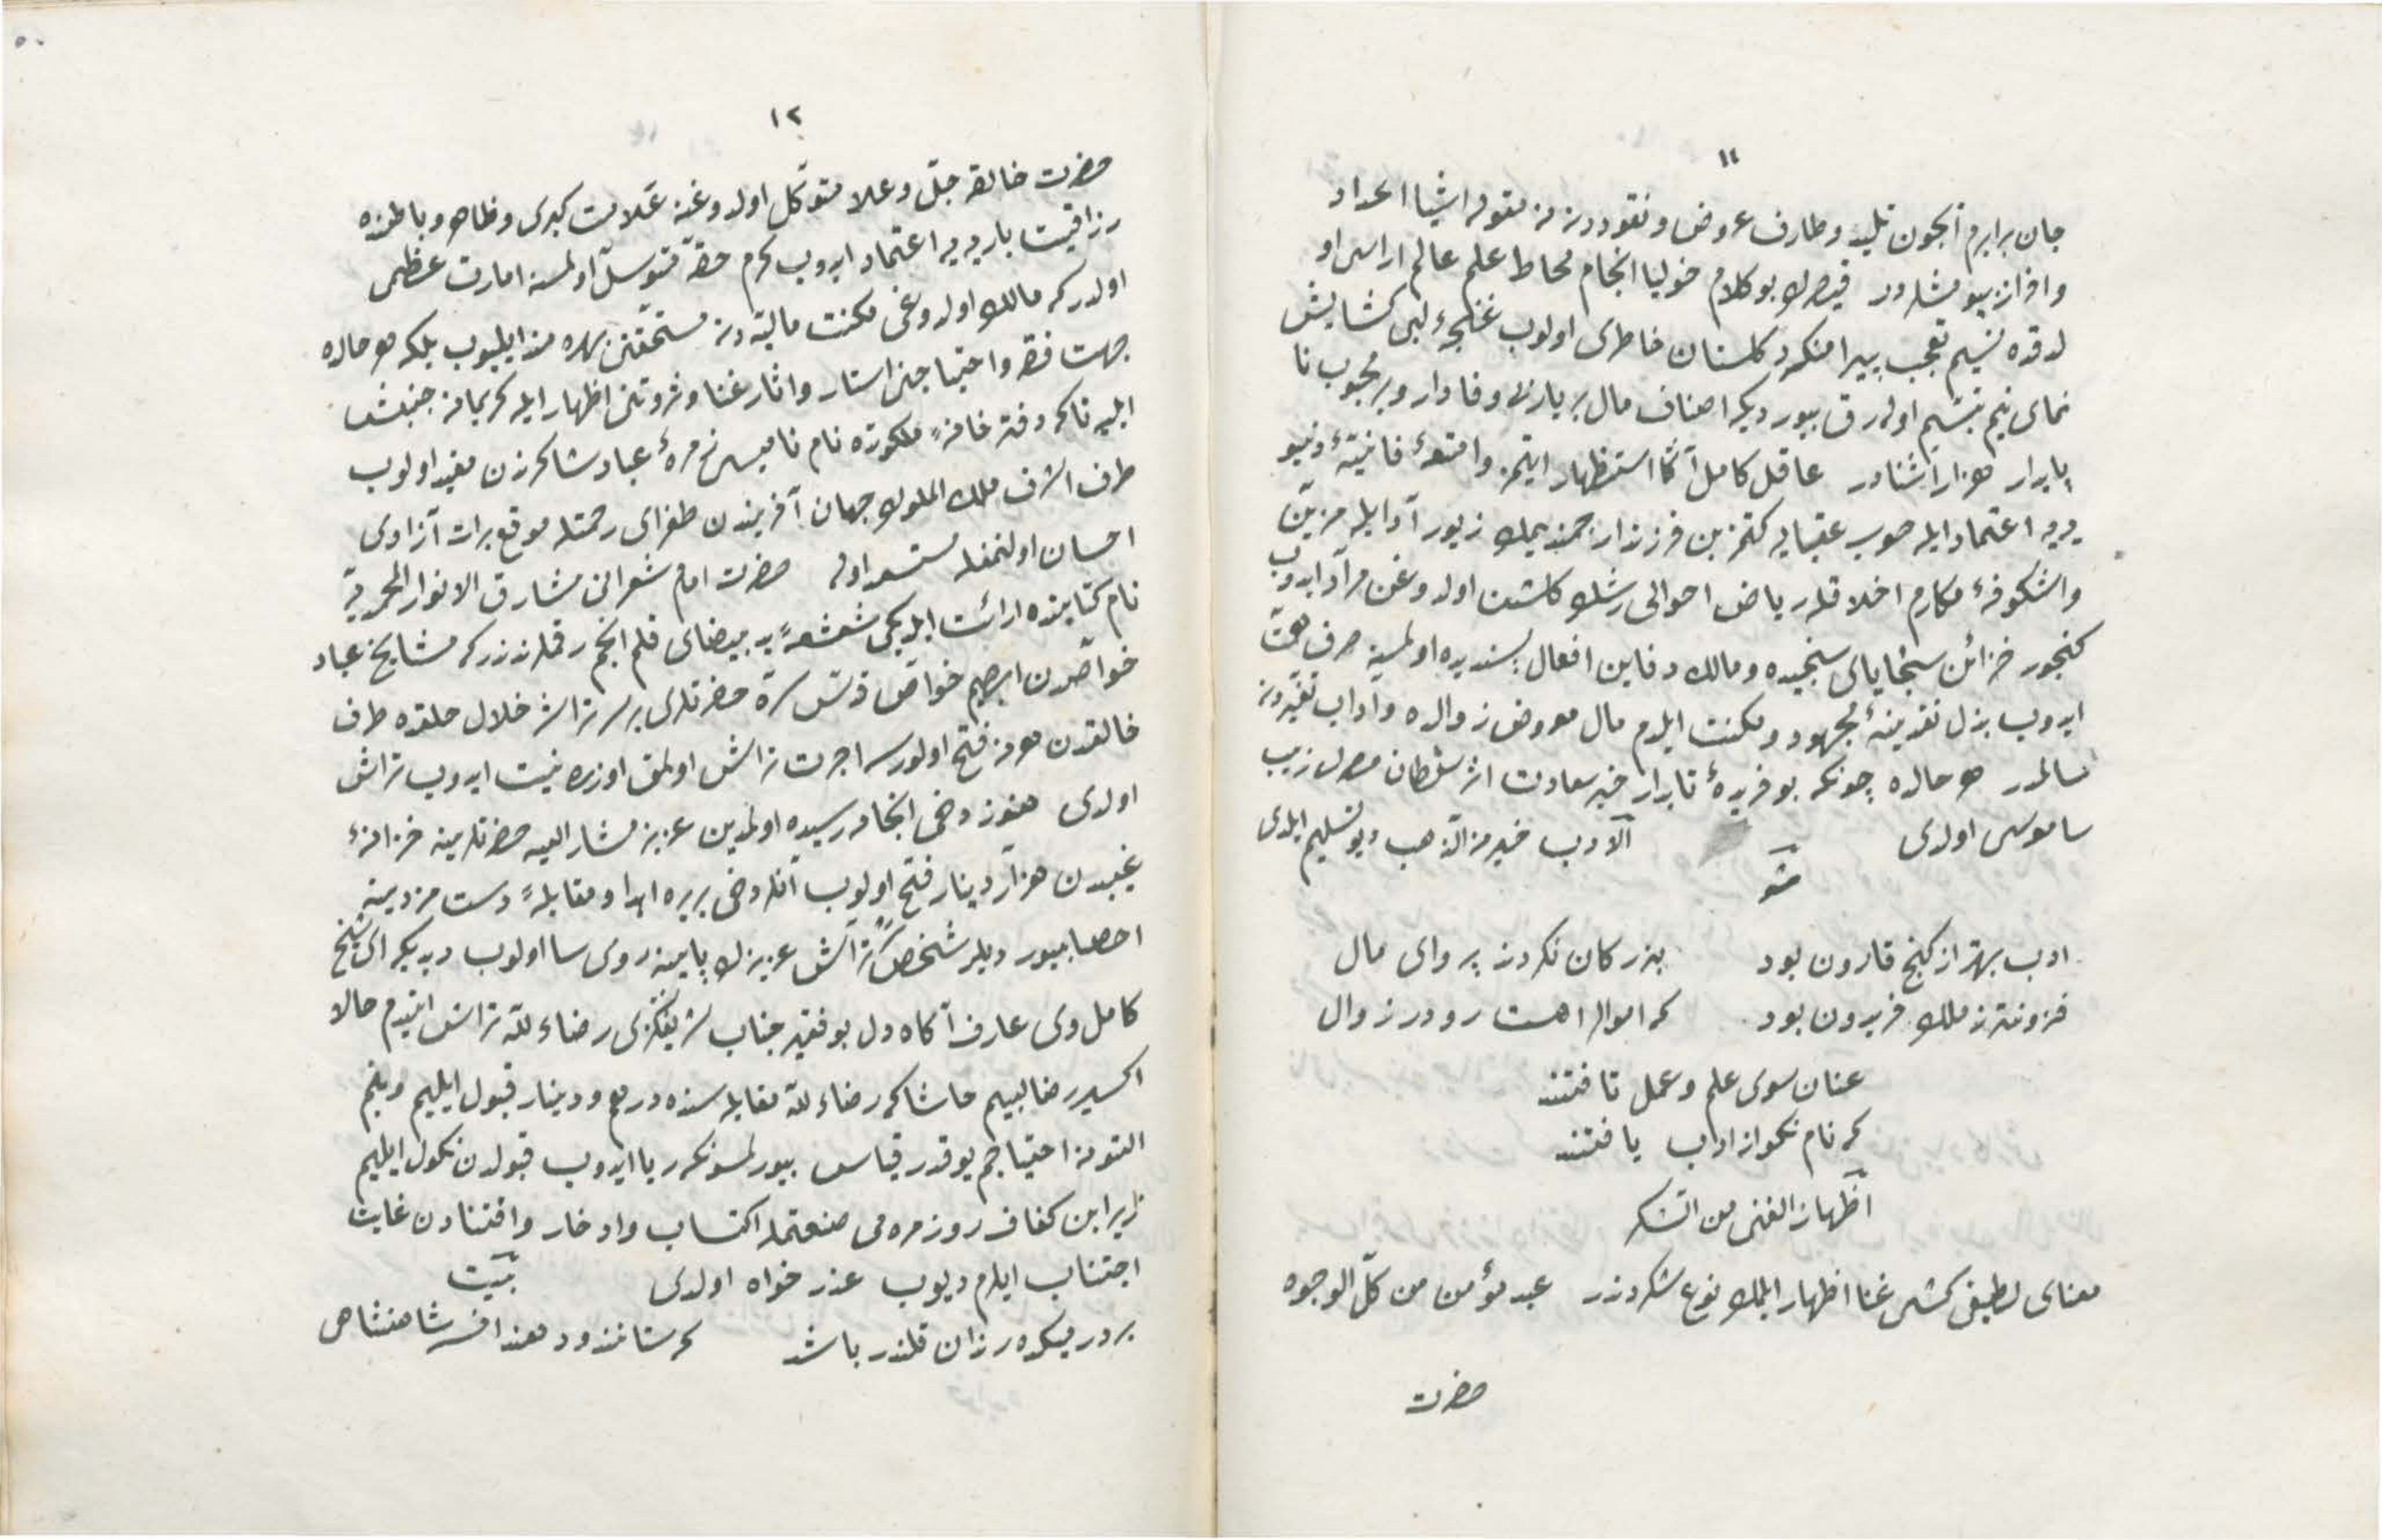 ١١
جان برابرم آنجون تلید و طارف عروض و نقوددن نه مقوله اشیا اعداد
و افراز بیور مشلردر قیصرك بو كلام خولیا انجام محاط علم عالم اراسی او
لدقده نسیم تعجب پیرامنكرد كلستان خاطری اولوب غنچهٔ لبی كشایش
نمای نیم تبسّم اوله‌رق بیور دیكه اصناف مال بر یار بی وفادار و بر محبوب نا
پایدار هزار آشنادر عاقل كامل آكا استظهار ایتمز و امتعهٔ فانیهٔ دنیو
یه‌یه اعتماد ایله صوب عقبایه كتمز بن فرزند ارجمندیمك زیور آداب ایله مزین
و اشكوفهٔ مكارم اخلاقله ریاض احوالی رشك كلشن اولدوغن مراد ایدوب
كنجور خزائن سجایای سنجیده و مالك دفاین افعال پسندیده اولمسنه صرف همّت
ایدوب بذل نقدینهٔ مجهود و مكنت ایلدم مال معروض زوالده و اداب تغیردن
سالمدر هر حالده چونكه بو فریدهٔ تابدار خبر سعادت اثر سلطان رسل زیب
ساموسی اولدی الادب خیر من الذهب دیو تسلیم ایلدی
ادب بهتر از كنج قارون بود بزركان نكردند پروای مال
فزونتر ز ملك فریدون بود كه اموال را هست رو در زوال
عنان سوی علم و عمل تافتند
كه نام نكو از اداب یافتند
اظهار الغنى من الشكر
معنای لطیفی كشی غنا اظهار ایلمك نوع شكردندر عبد مؤمن من كلّ الوجوه
حضرت
١٢
حضرت خالق جلّ و علا متوكّل اولدوغنه علامت كبری و ظاهر و باطنده
رزاقیت باریه‌یه اعتماد ایدوب كرم حقّه متوسل اولمسنه امارت عظمی
اولدر كه مالك اولدوغی مكنت مالیه‌دن مستحقنی بهره‌مند ایلیوب بلكه هر حالده
جهت فقر و احتیاجنی استار و اثار غنا و ثروتنی اظهار ایله كریمانه جنبش
ایلیه تاكه دفتر خانهٔ ملكوتده نام نامیسی زمرهٔ عباد شاكرزن مقید اولوب
طرف اشرف ملك الملوك جهان آفریندن طغرای رحمتله موقع برات آزادی
احسان اولنمغله مستعد اوله حضرت امام شعرانی مشارق الانوار المحمدیه
نام كتابنده ارائت ایلدیكی شعشعهٔ ید بیضای قلم انجم رقملرندندر كه مشایخ عباد
خواصدن ابرهیم خواص قدّس سرّه حضرتلری بر سر تراشه خلال حلقده طرف
خالقدن هر نه فتح اولورسه اجرت تراش اولمق اوزره نیت ایدوب تراش
اولدی هنوز دخی انجامه رسیده اولمدین عزیز مشار الیه حضرتلرینه خزانهٔ
غیبدن هزار دینار فتح اولوب آنلردخی بربره اهدا و مقابلهٔ دست مزدینه
احصا بیوردیلر شخص تراش عزیزك پاینه روی سا اولوب دیدیكه ای شیخ
كامل وی عارف آكاه دل بو فقیر جناب شریفكزی رضاء لله تراش ایتدم حالا
اكسیر رضا لبیم حاشا كه رضاء لله مقابله‌سنده درهم و دینار قبول ایلیم و بنم
التونه احتیاجم یوقدر قیاس بیورلمسونكه ریا ایدوب قبولدن نكول ایلیم
زیرا بن كفاف روزمره‌می صنعتمله اكتساب و ادخار و اقتنادن غایت
اجتناب ایلرم دیوب عذر خواه اولدی بیت
بر در میكده رندان قلندر باشد كه ستانند و دهند افسر شاهنشاهی